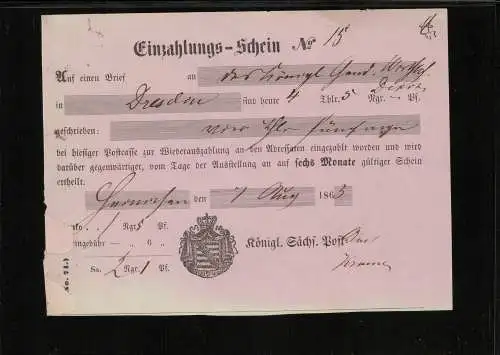 Einzahlungs-Schein No 15
Auf einen Brief an das Königl. Gend. Wirthsch.
in Dresden sind heute 4 Thlr. 5 Ngr. – Pf. Depos.
geschrieben: vier Thlr fünf ngr
bei hiesiger Postcasse zur Wiederauszahlung an den Adressaten eingezahlt worden und wird
darüber gegenwärtiger, vom Tage der Ausstellung an auf sechs Monate gültiger Schein
ertheilt.
den 7 Aug 1863
1 Ngr 5 Pf.
gebühr – „ 6 „
Sa. 2 Ngr. 1 Pf.
Königl. Sächs. Post